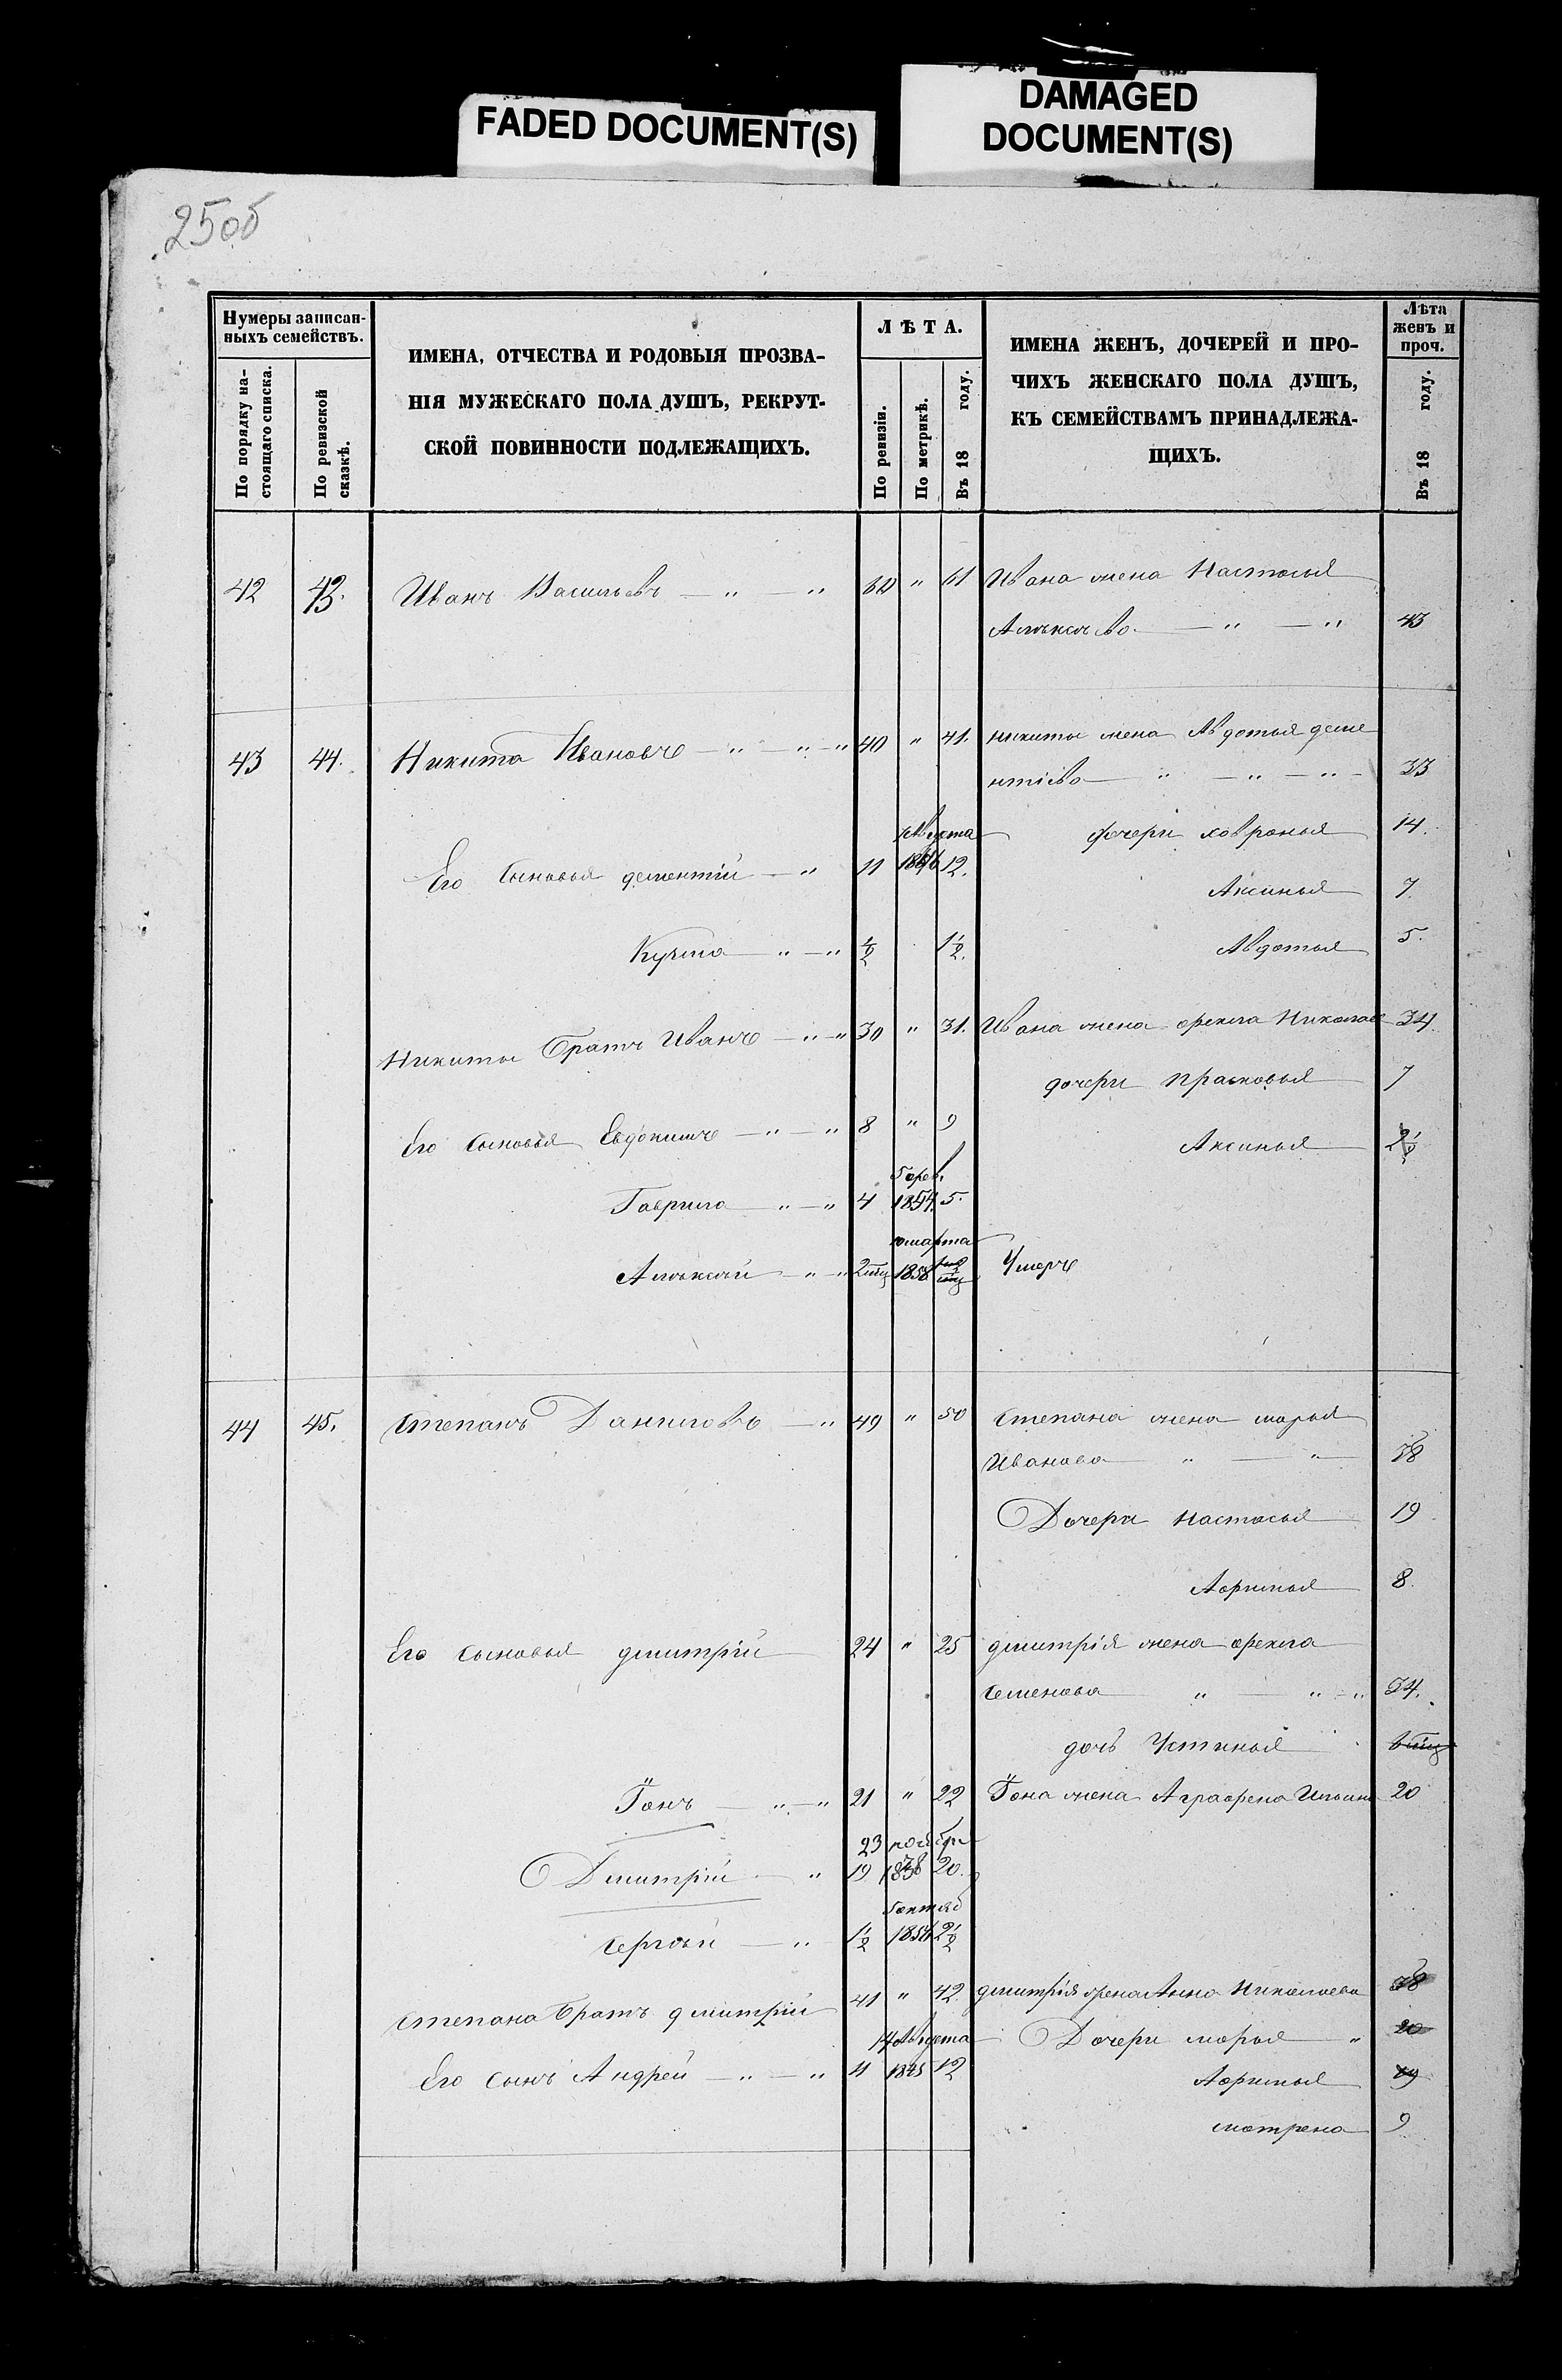 FADED DOCUMENT(S)
DAMAGED
DOCUMENT(S)
25об
Нумеры записан-
ныхъ семействъ.
По порядку на-
стоящаго списка.
По ревизской
сказкѣ.
ИМЕНА, ОТЧЕСТВА И РОДОВЫЯ ПРОЗВА-
НІЯ МУЖЕСКАГО ПОЛА ДУШЪ, РЕКРУТ-
СКОЙ ПОВИННОСТИ ПОДЛЕЖАЩИХЪ.
ЛѢТА.
По ревизіи.
По метрикѣ.
Въ 18 году.
ИМЕНА ЖЕНЪ, ДОЧЕРЕЙ И ПРО-
ЧИХЪ ЖЕНСКАГО ПОЛА ДУШЪ,
КЪ СЕМЕЙСТВАМЪ ПРИНАДЛЕЖА-
ЩИХЪ.
Лѣта
женъ и
проч.
Въ 18 году.
42 43. Иванъ Васильевъ — " — " 60 " 61 Ивана жена Настасья
Алѣксѣева — " — " 43
43 44. Никита Ивановъ — " — " — " 40 " 41. никиты жена Авдотья деме
нтіева — " — " — " — 33
Августа дочери ховронья 14.
Его сыновья дементій — " 11 1846 12.
Аксинья 7.
Кузма — " — " 1/2 1 1/2. Авдотья 5.
Никиты братъ Иванъ — " — " 30 " 31. Ивана жена фекла Николаев 34.
дочери прасковья 7
Его сыновья Евдокимъ — " — " 8 " 9
Аксинья 2 1/2
Гаврила — " — " 4 1854. 5.
марта
Алѣксѣй — " — " 2 мц 1858 Умеръ
44 45. Степанъ Даниловъ — " 49 " 50 Степана жена марья
Иванова — " — " 38
Дочери настасья 19
Афимья 8.
Его сыновья дмитрій 24 " 25 дмитрія жена фекла
Семенова " — " — " 24.
дочь Устинья
Іонъ — " — " 21 " 22 Іона жена Аграфена Ильина 20
23 ноября
Дмитрій " 19 1838 20.
5 октяб
Сергѣй — " 1 1/2 1856 2 1/2
Степана братъ дмитрій 41 " 42 дмитрія жена Анна Николаева 38
14 Августа Дочери марья " 20
Его сынъ Андрей — " — " 11 1845 12
Афимья 19
матрена 9